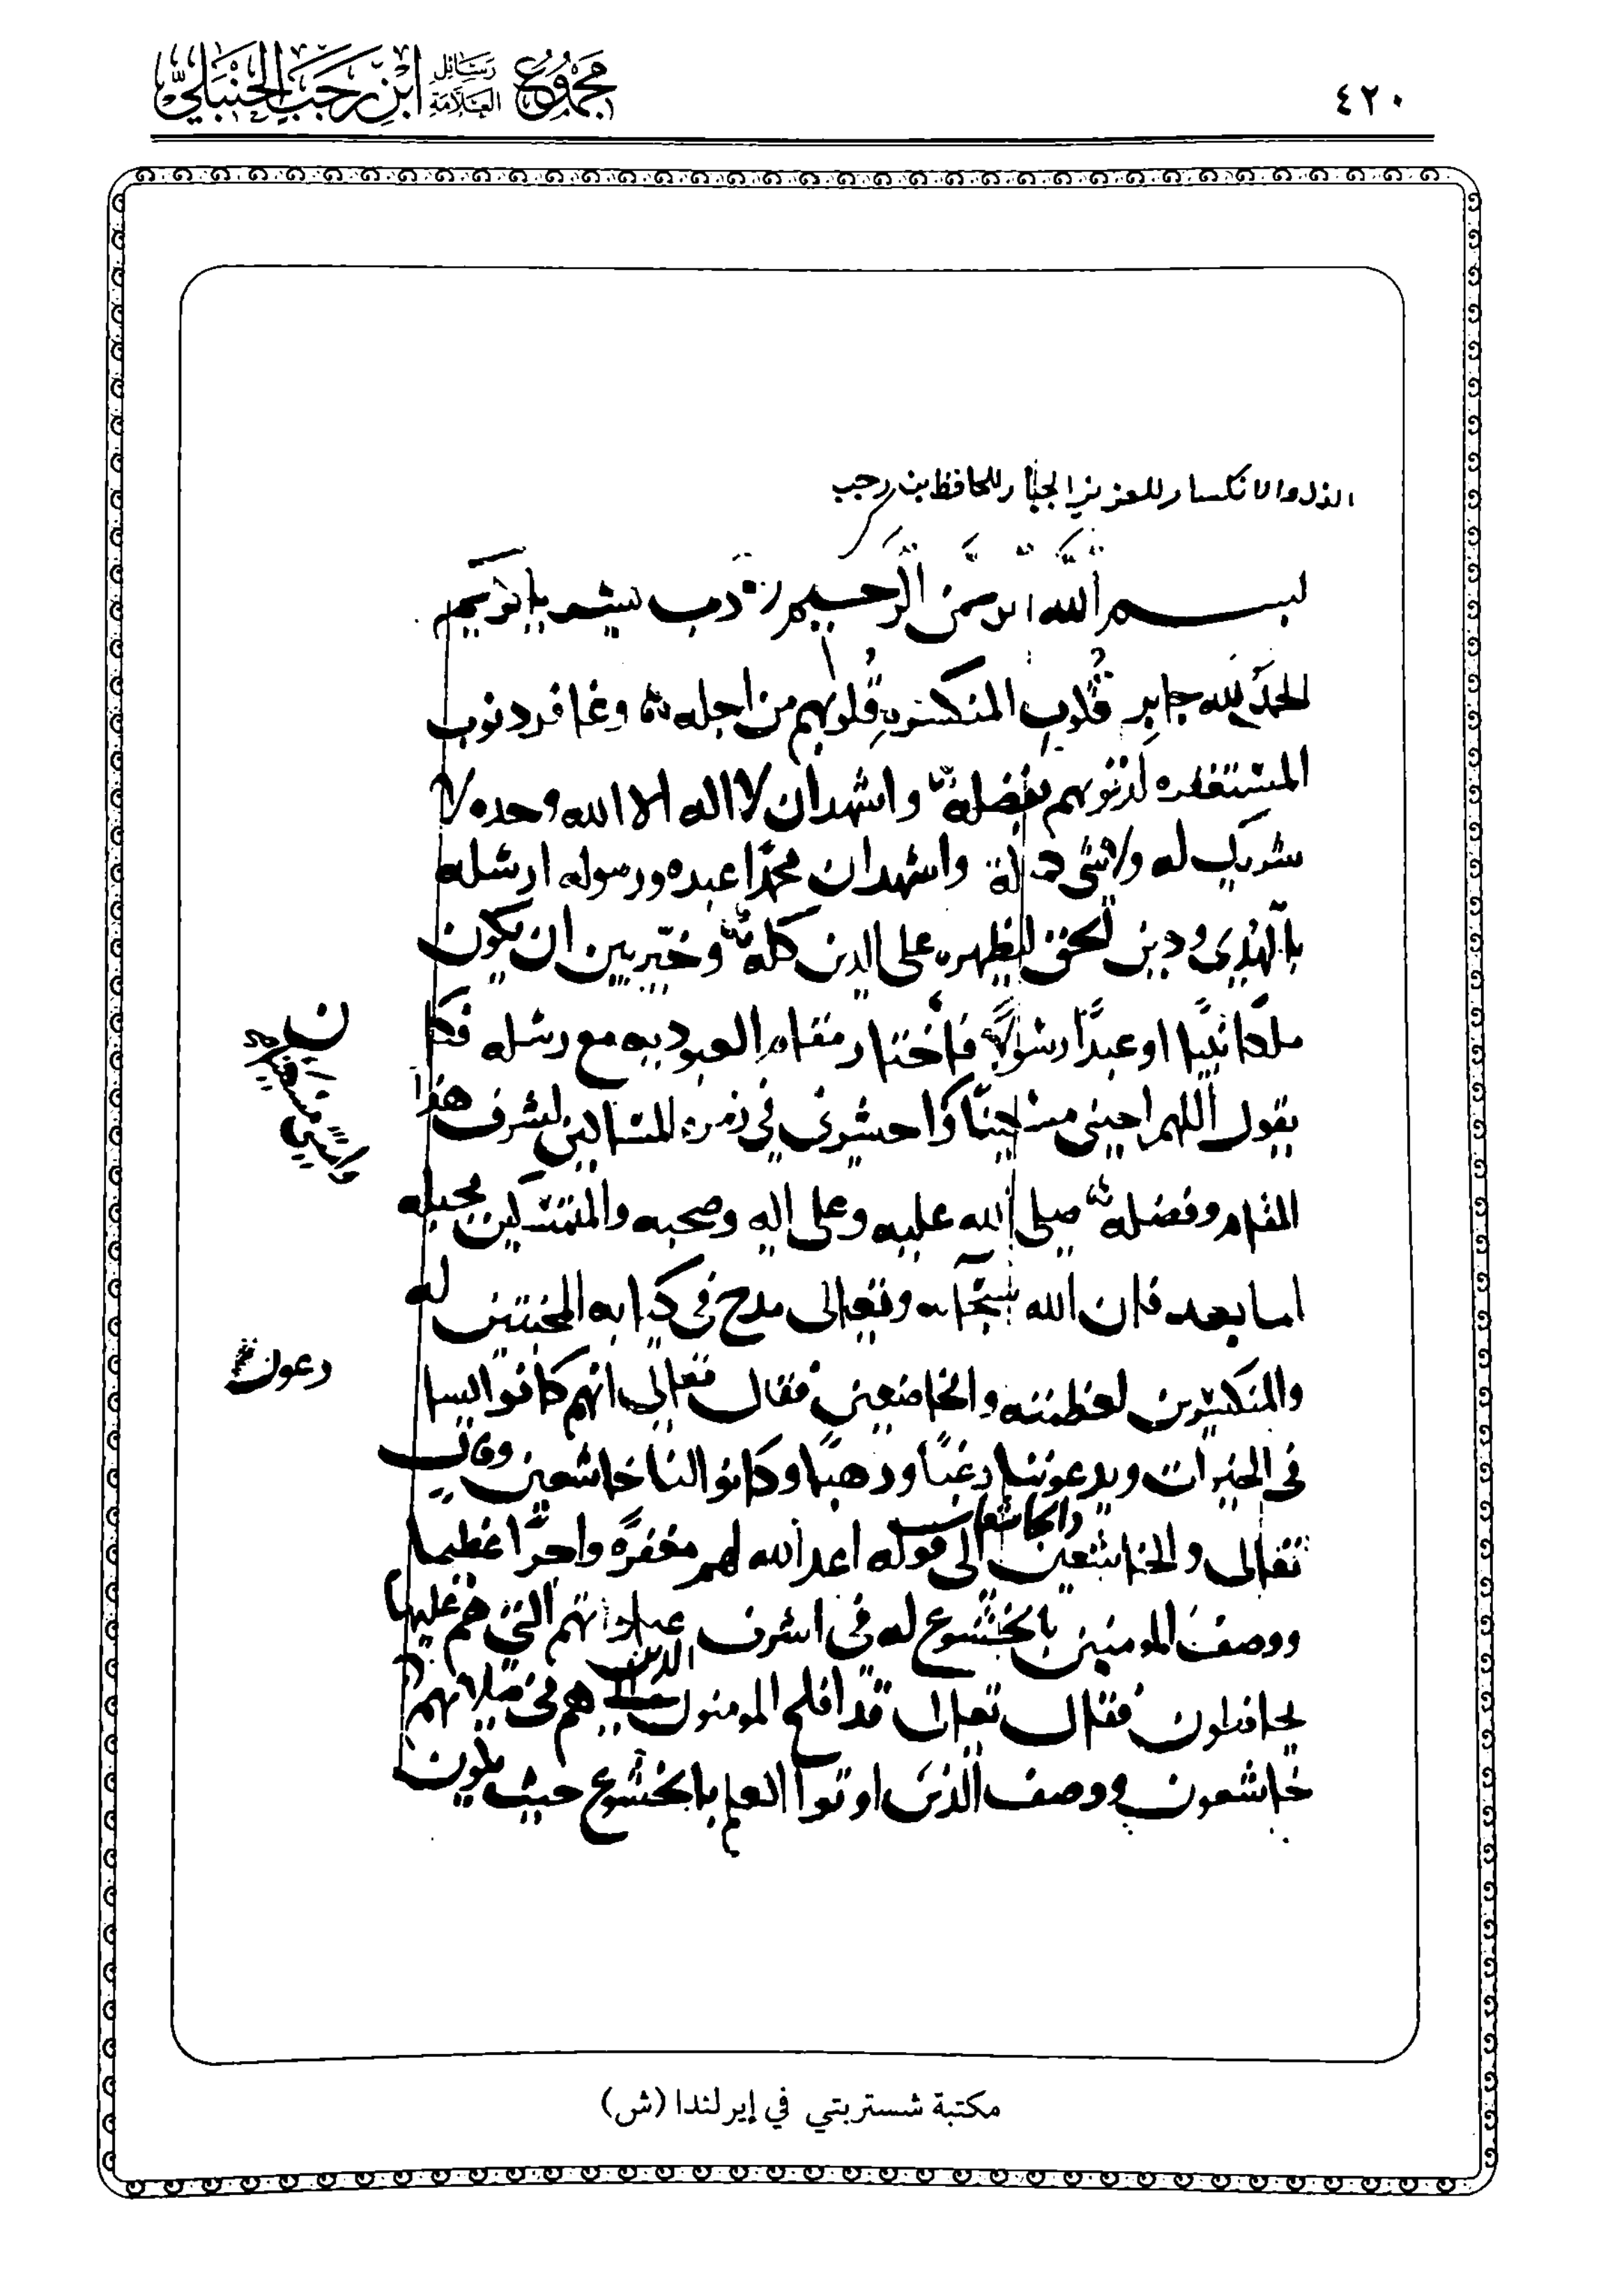 ٤٢٠
مجموع رسائل العلامة ابن رجب الحنبلي
الذل والانكسار للعزيز الجبار للحافظ بن رجب
بسم الله الرحمن الرحيم رب يسر يا كريم
الحمد لله جابر قلوب المنكسره قلوبهم من اجله وغافر ذنوب
المستغفره لذنوبهم بفضله واشهد ان لا اله الا الله وحده لا
شريك له ولا شي واشهد ان محمدا عبده ورسوله ارسله
بالهدى ودين الحق ليظهره على الدين كله وخير بين ان يكون
ملكا نبيا او عبدا رسولا فاختار مقام العبوديه مع رسله فكا
ن
يقول اللهم احيني مسكينا واحشرني في زمره المساكين لشرف هذا
وامتني مسكينا
المقام وفضله صلى الله عليه وعلى اله وصحبه والمتمسكين بحبله
اما بعد فان الله سبحانه وتعالى مدح في كتابه المخبتين له
والمنكسرين لعظمته والخاضعين فقال تعالى انهم كانوا يسا
رعون
في الخيرات ويدعوننا رغبا ورهبا وكانوا لنا خاشعين وقال
تعالى والخاشعين والخاشعات الى قوله اعد الله لهم مغفرة واجرا عظيما
ووصف المومنين بالخشوع له في اشرف عباداتهم التي هم عليها
يحافظون فقال تعالى قد افلح المومنون الذين هم في صلاتهم
خاشعون ووصف الذين اوتوا العلم بالخشوع حيث يكون
مكتبة شستربتي في إيرلندا (ش)